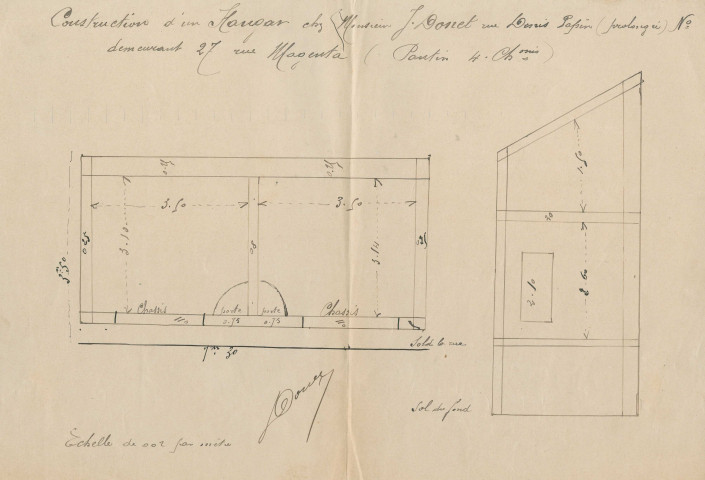 Construction d'un Hangar chez Monsieur J. Donet rue Denis Papin (prolongée) No
demeurant 27 rue Magenta (Pantin 4-Chnins)
0.25
0.25
3.50
3.50
1.50
3.10
3.14
0.25
20
2.60
2.10
3m50
Chassis
porte
porte
Chassis
0.75
0.75
Sol de la rue
7m 30
Sol du fond
Echelle de 002 par mètre